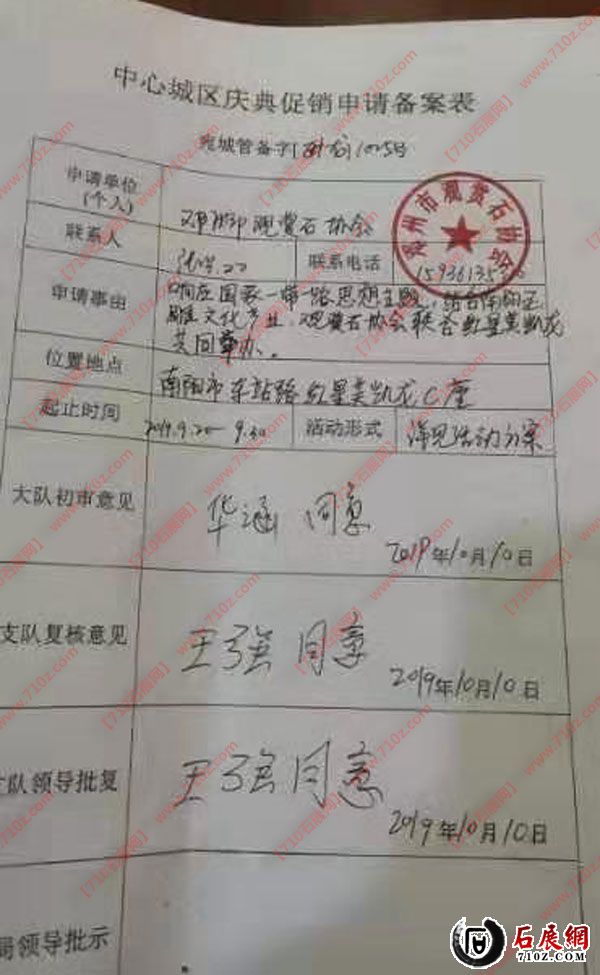 中心城区庆典促销申请备案表
宛城管备字[ 1005号
申请单位
(个人)
邓州市观赏石协会
邓州市观赏石协会
联系人
联系电话
申请事由
响应国家一带一路思想主题，结合南阳玉
雕文化产业，观赏石协会联合红星美凯龙
共同举办。
位置地点
南阳市车站路红星美凯龙C座
起止时间
2019.9.20- 9.30
活动形式
详见活动方案
大队初审意见
华涵 同意
2019年10月10日
支队复核意见
王强 同意
2019年10月10日
队领导批复
王强同意
2019年10月10日
局领导批示
石展網
710z.com
【710石展网】
www.710z.com